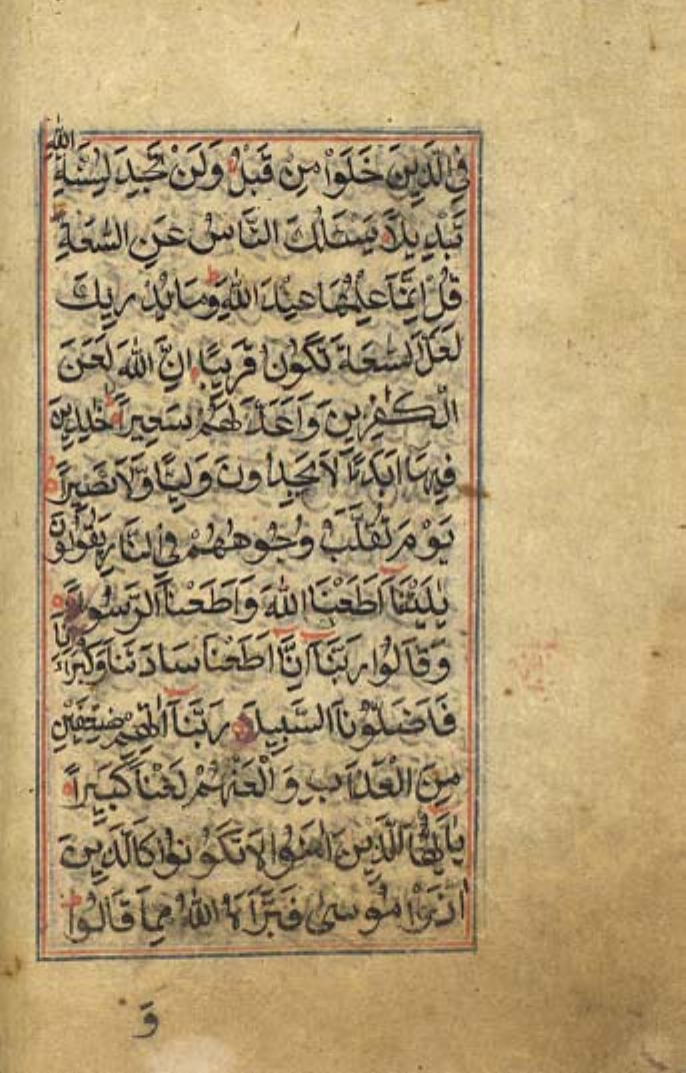 فِي الَّذِينَ خَلَوْا مِن قَبْلُ وَلَنْ تَجِدَ لِسُنَّةِ اللّٰهِ
تَبْدِيلًا يَسْـَٔلُكَ النَّاسُ عَنِ السَّعَةِ
قُلْ اِنَّمَا عِلْمُهَا عِنْدَ اللّٰهِ وَمَا يُدْرِيكَ
لَعَلَّ السَّعَةَ تَكُونُ قَرِيبًا اِنَّ اللّٰهَ لَعَنَ
الْكٰفِرِينَ وَاَعَدَّ لَهُمْ سَعِيرًا خٰلِدِينَ
فِيهَا اَبَدًا لَا يَجِدُونَ وَلِيًّا وَلَا نَصِيرًا
يَوْمَ تُقَلَّبُ وُجُوهُهُمْ فِي النَّارِ يَقُولُونَ
يٰلَيْتَنَا اَطَعْنَا اللّٰهَ وَاَطَعْنَا الرَّسُولَا
وَقَالُوا رَبَّنَا اِنَّا اَطَعْنَا سَادَتَنَا وَكُبَرَاءَنَا
فَاَضَلُّونَا السَّبِيلَا رَبَّنَا اٰتِهِمْ ضِعْفَيْنِ
مِنَ الْعَذَابِ وَالْعَنْهُمْ لَعْنًا كَبِيرًا
يٰاَيُّهَا الَّذِينَ اٰمَنُوا لَا تَكُونُوا كَالَّذِينَ
اٰذَوْا مُوسٰى فَبَرَّاَهُ اللّٰهُ مِمَّا قَالُوا
وَ